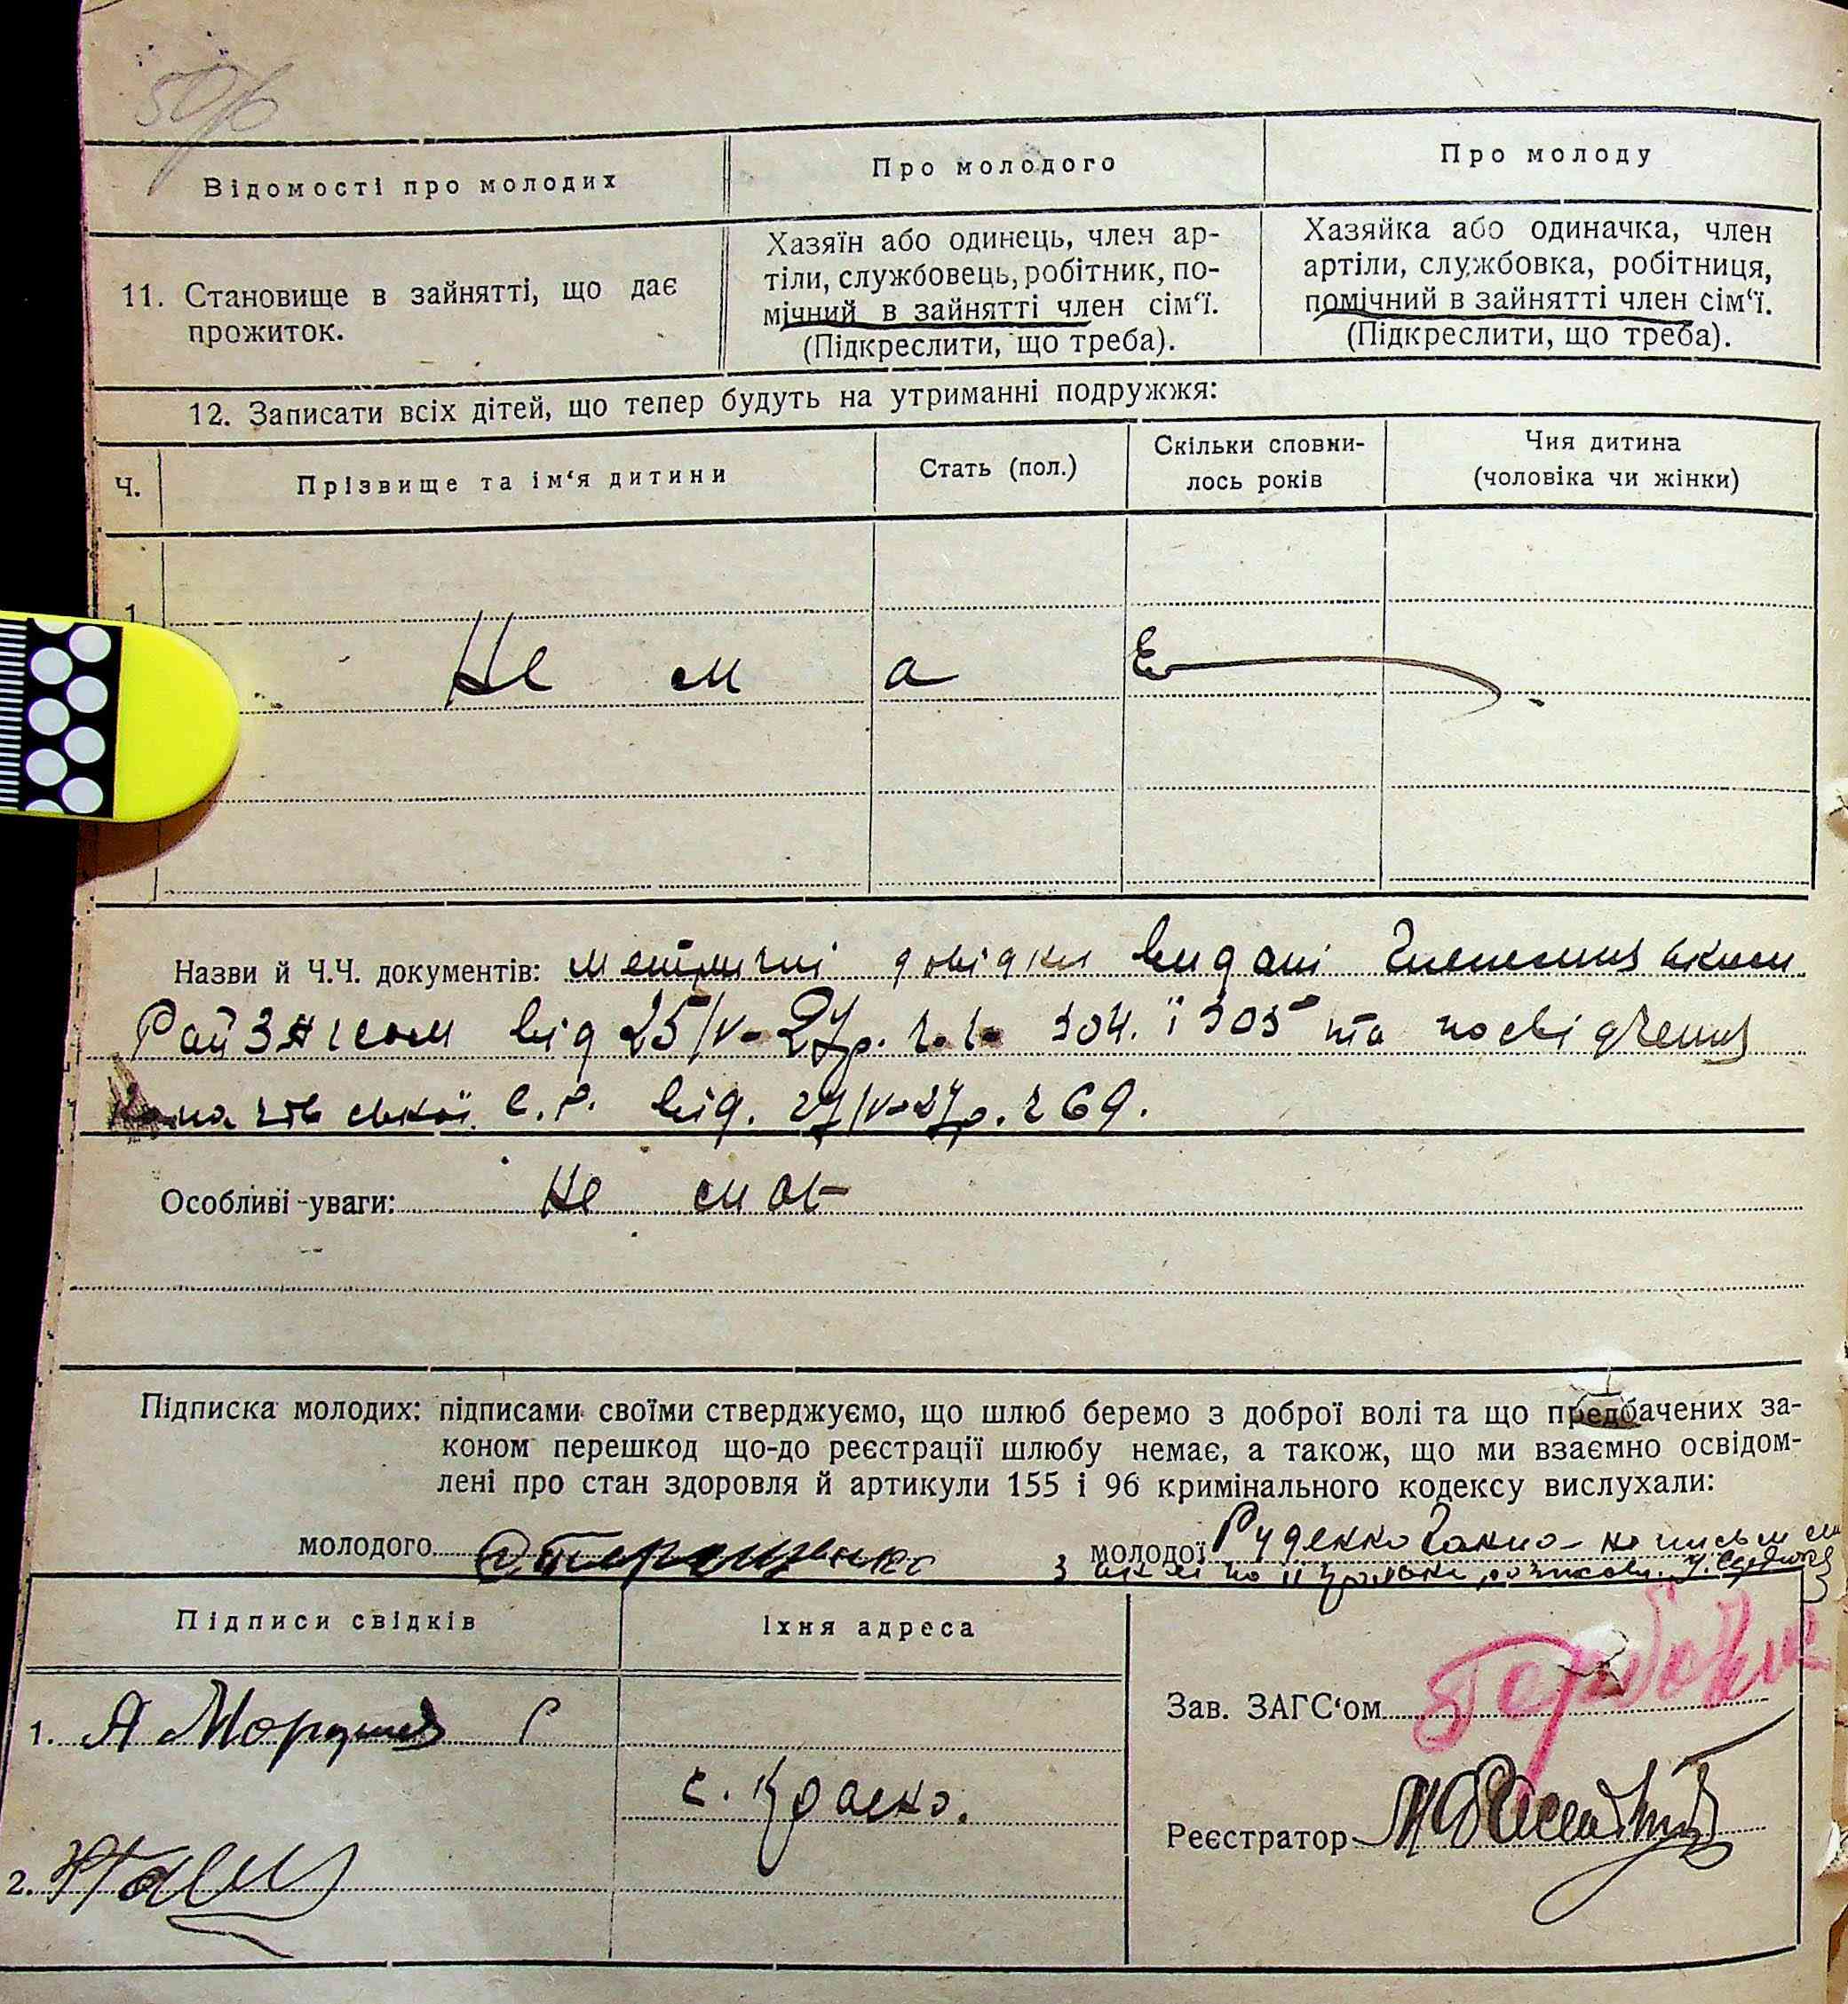 50
Відомості про молодих
Про молодого
Про молоду
11. Становище в зайнятті, що дає
прожиток.
Хазяїн або одинець, член ар-
тіли, службовець, робітник, по-
мічний в зайнятті член сім‘ї.
(Підкреслити, що треба).
Хазяйка або одиначка, член
артіли, службовка, робітниця,
помічний в зайнятті член сім‘ї.
(Підкреслити, що треба).
12. Записати всіх дітей, що тепер будуть на утриманні подружжя:
Ч.
Прізвище та ім‘я дитини
Стать (пол.)
Скільки сповни-
лось років
Чия дитина
(чоловіка чи жінки)
1
Не м а Є
Назви й Ч.Ч. документів: метричні довідки видані
РайЗагсом від 25/IV-27р. 304. і 305 та посвідчення
с.р. від. 27/IV-27р. 269.
Особливі уваги: Не має
Підписка молодих: підписами своїми стверджуємо, що шлюб беремо з доброї волі та що предбачених за-
коном перешкод що-до реєстрації шлюбу немає, а також, що ми взаємно освідом-
лені про стан здоровля й артикули 155 і 96 кримінального кодексу вислухали:
молодого Терещенко молодої Руденко
Підписи свідків
Їхня адреса
1. А
с.
2.
Зав. ЗАГС‘ом
Реєстратор